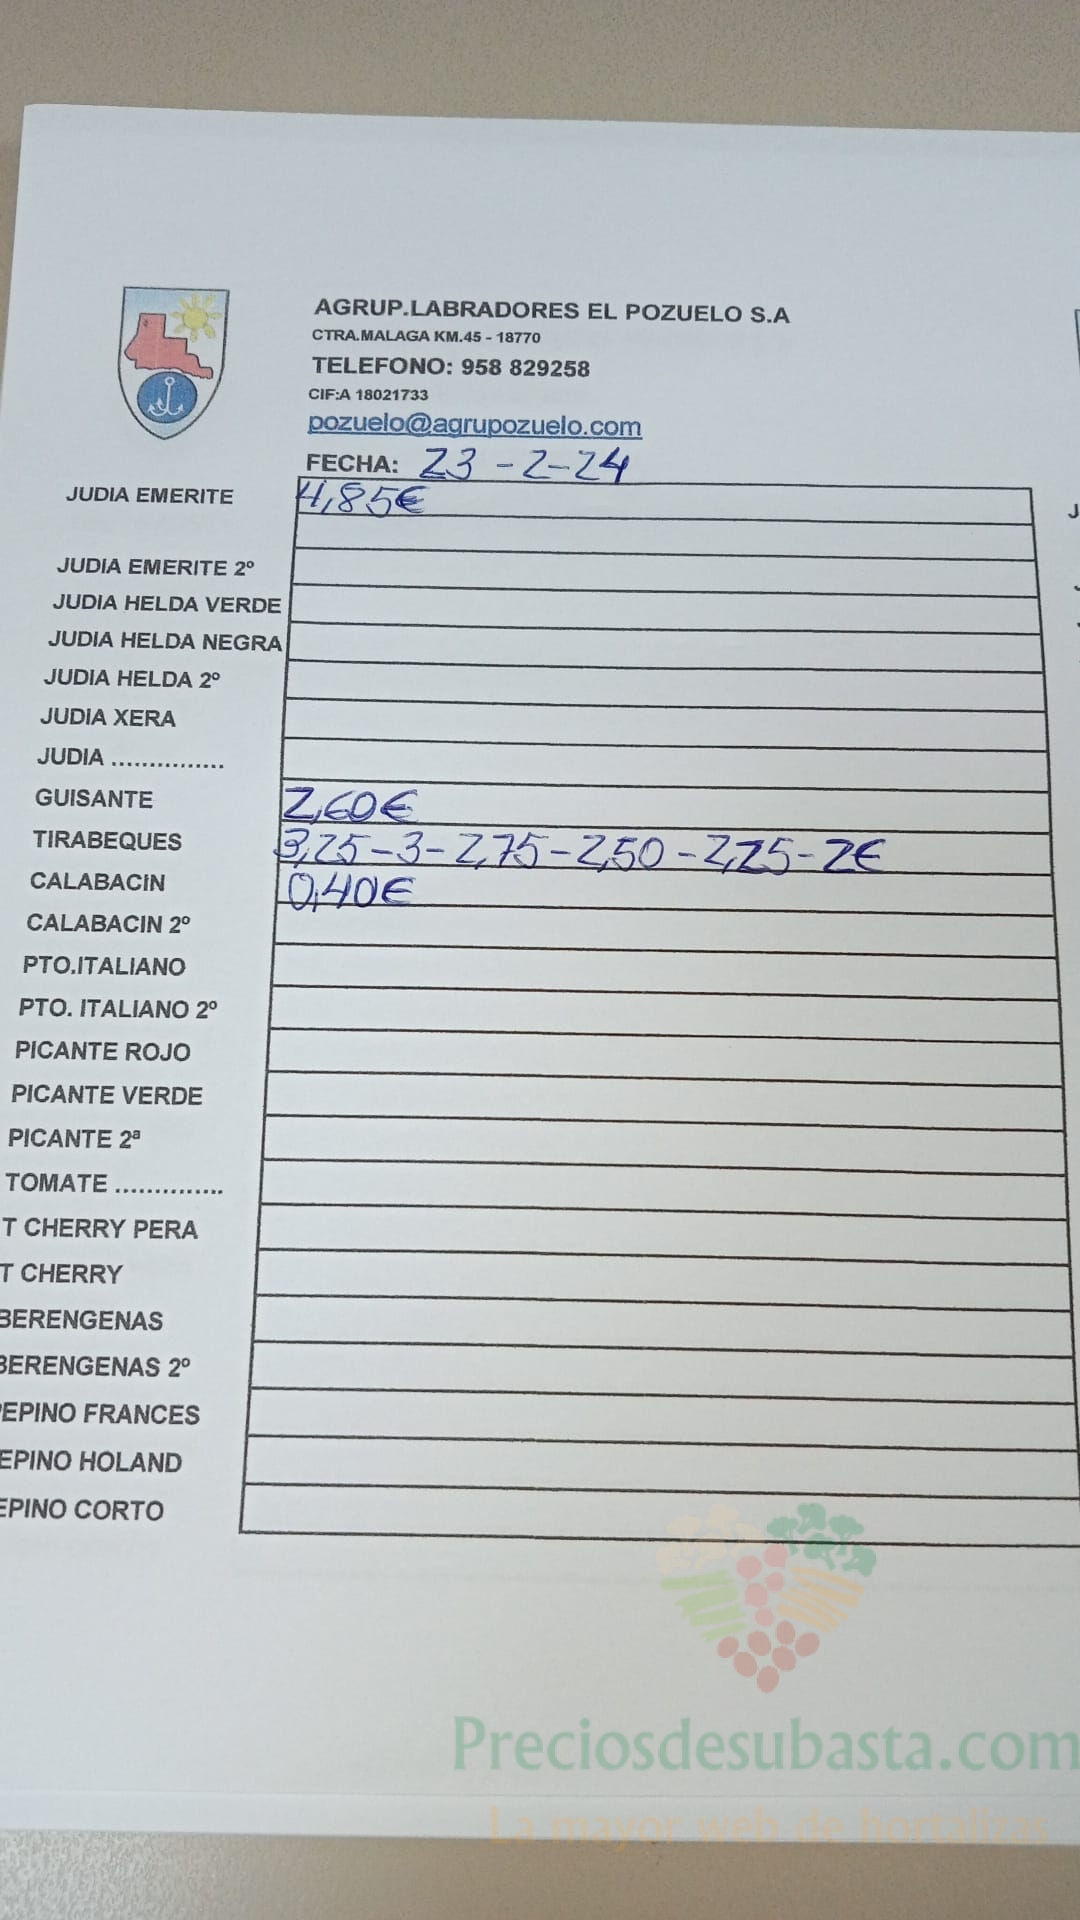 AGRUP.LABRADORES EL POZUELO S.A
CTRA.MALAGA KM.45 - 18770
TELEFONO: 958 829258
CIF:A 18021733
pozuelo@agrupozuelo.com
FECHA: 23-2-24
JUDIA EMERITE 4,85€
JUDIA EMERITE 2º
JUDIA HELDA VERDE
JUDIA HELDA NEGRA
JUDIA HELDA 2º
JUDIA XERA
JUDIA ...............
GUISANTE 2,60€
TIRABEQUES 3,25-3-2,75-2,50-2,25-2€
CALABACIN 0,40€
CALABACIN 2º
PTO.ITALIANO
PTO. ITALIANO 2º
PICANTE ROJO
PICANTE VERDE
PICANTE 2ª
TOMATE ..............
T CHERRY PERA
T CHERRY
BERENGENAS
BERENGENAS 2º
EPINO FRANCES
EPINO HOLAND
EPINO CORTO
Preciosdesubasta.com
La mayor web de hortalizas